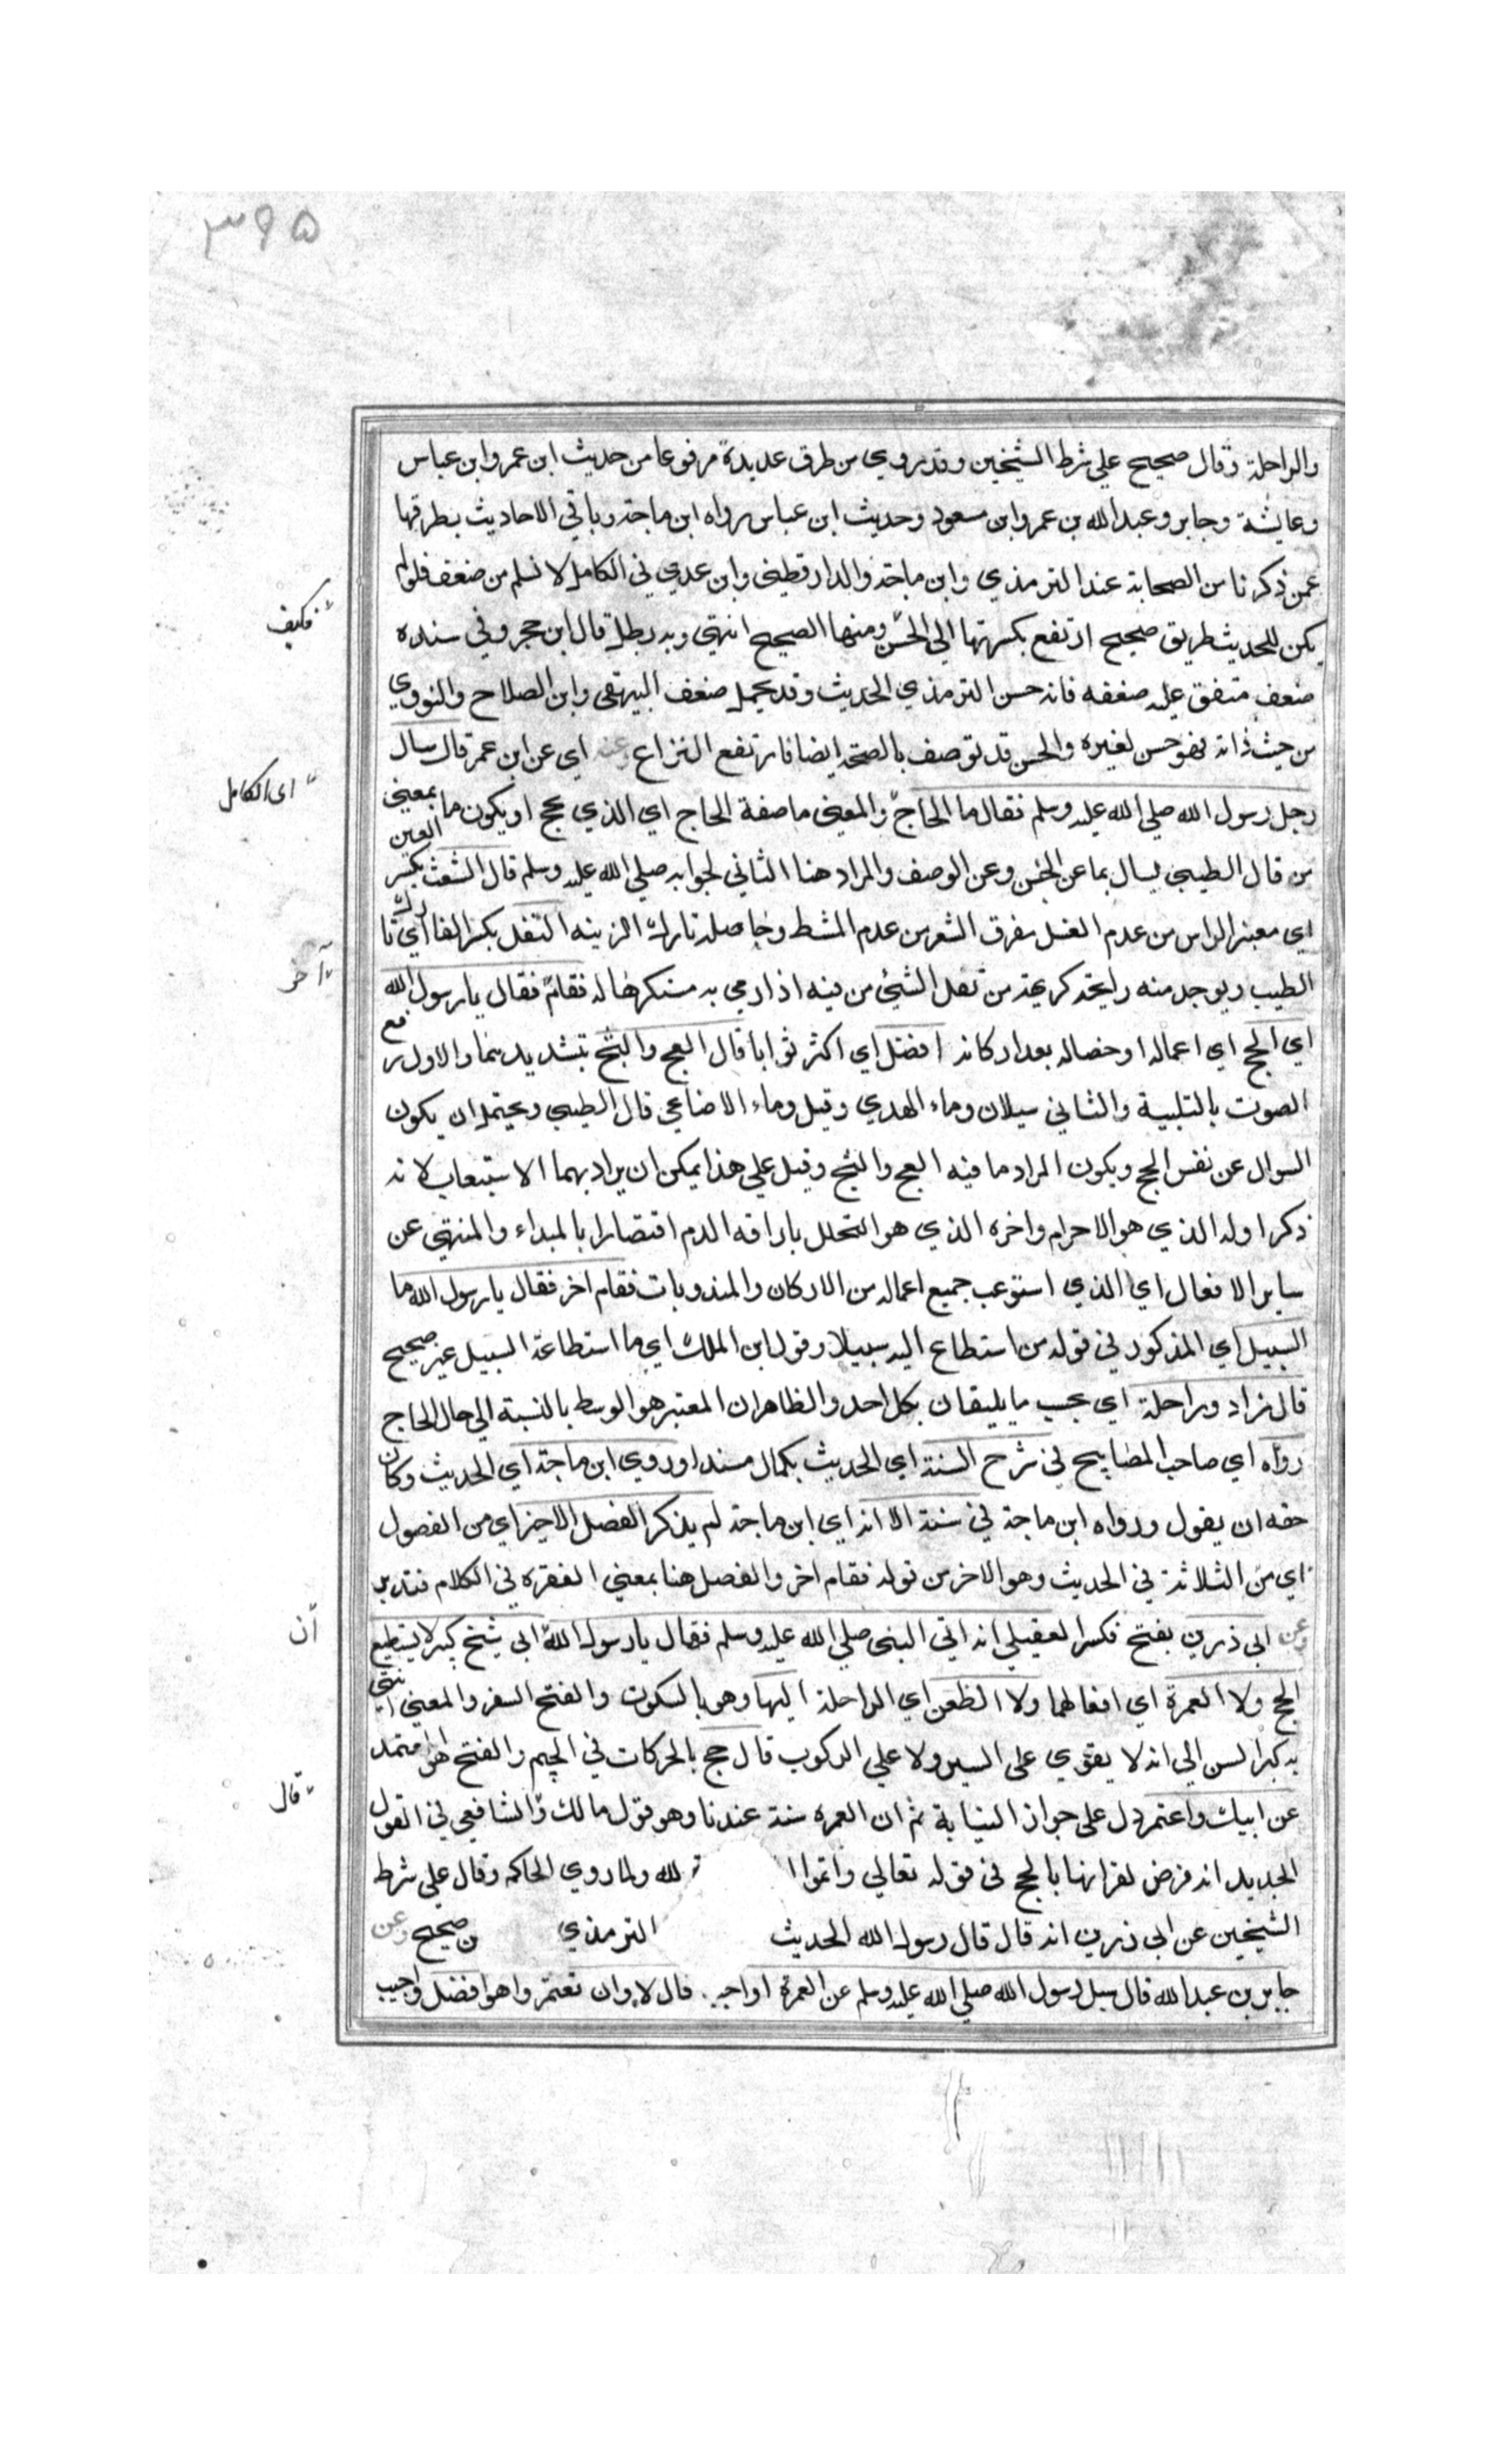 ۳۶۵
والراحلة وقال صحيح علي شرط الشيخين وقد روي من طرق عديدة مرفوعا من حديث ابن عمر وابن عباس
وعايشة وجابر وعبد الله بن عمر وابن مسعود وحديث ابن عباس رواه ابن ماجة وباقي الاحاديث بطرقها
عمن ذكرنا من الصحابة عند الترمذي وابن ماجة والدارقطني وابن عدي في الكامل لا تسلم من ضعف فلولم
يكن للحديث طريق صحيح ارتفع بكثرتها الي الحسن ومنها الصحيح انتهي وبه بطل قال ابن حجر وفي سنده
فكيف
ضعف متفق عليه ضعفه فانه حسن الترمذي الحديث وقد يحمل ضعف البيهقي وابن الصلاح والنووي
من حيث ذاته فهو حسن لغيره والحسن قد توصف بالصحة ايضا فارتفع النزاع وعنه اي عن ابن عمر قال سال
اى الكامل
رجل رسول الله صلي الله عليه وسلم فقال ما الحاج والمعني ما صفة الحاج اي الذي يحج او يكون ما بمعني
من قال الطيبي يسال بما عن الجنس وعن الوصف والمراد هنا الثاني لجوابه صلي الله عليه وسلم قال الشعث بكسر العين
اي مغبر الراس من عدم الغسل مفرق الشعر من عدم المشط وحاصله تارك الزينه التفل بكسر الفا اي تارك
الطيب ويوجد منه رايحة كريهة من تفل الشيئ من فيه اذا رمي به مستكرها له فقام فقال يا رسول الله
آخر
اي الحج اي اعماله او خصاله بعد اركانه افضل اي اكثر ثوابا قال العج والثج بتشديدهما والاول رفع
الصوت بالتلبية والثاني سيلان دماء الهدي وقيل دماء الاضاحي قال الطيبي ويحتمل ان يكون
السوال عن نفس الحج ويكون المراد ما فيه العج والثج وقيل علي هذا يمكن ان يراد بهما الاستيعاب لانه
ذكر اوله الذي هو الاحرام واخره الذي هو التحلل باراقة الدم اقتصارا بالمبداء والمنتهي عن
ساير الافعال اي الذي استوعب جميع اعماله من الاركان والمندوبات فقام اخر فقال يا رسول الله ما
السبيل اي المذكور في قوله من استطاع اليه سبيلا وقول ابن الملك اي ما استطاعة السبيل غير صحيح
قال زاد وراحلة اي بحسب ما يليقان بكل احد والظاهر ان المعتبر هو الوسط بالنسبة الي حال الحاج
رواه اي صاحب المصابيح في شرح السنة اي الحديث بكمال مسندا وروي ابن ماجة اي الحديث وكان
حقه ان يقول ورواه ابن ماجة في سننه الا انه اي ابن ماجة لم يذكر الفصل الاخير اي من الفصول
اي من الثلاثة في الحديث وهو الاخر من قوله فقام اخر والفصل هنا بمعني الفقرة في الكلام فتدبر
وعن ابي رزين بفتح فكسر العقيلي انه اتي النبي صلي الله عليه وسلم فقال يا رسول الله ابي شيخ كبير لا يستطيع
اَن
الحج ولا العمرة اي افعالهما ولا الظعن اي الراحلة اليها وهو بالسكون والفتح السفر والمعني انتهي
به كبر السن الي انه لا يقوي على السير ولا علي الركوب قال حج بالحركات في الجيم والفتح هو المعتمد
قال
عن ابيك واعتمر دل على جواز النيابة ثم ان العمرة سنة عندنا وهو قول مالك والشافعي في القول
الجديد انه فرض لقرانها بالحج في قوله تعالي واتموا ا لله ولما روي الحاكم وقال علي شرط
الشيخين عن ابي رزين انه قال قال رسول الله الحديث الترمذي ن صحيح وعن
جابر بن عبد الله قال سيل رسول الله صلي الله عليه وسلم عن العمرة اواجبه قال لا وان تعتمروا هو افضل واجيب